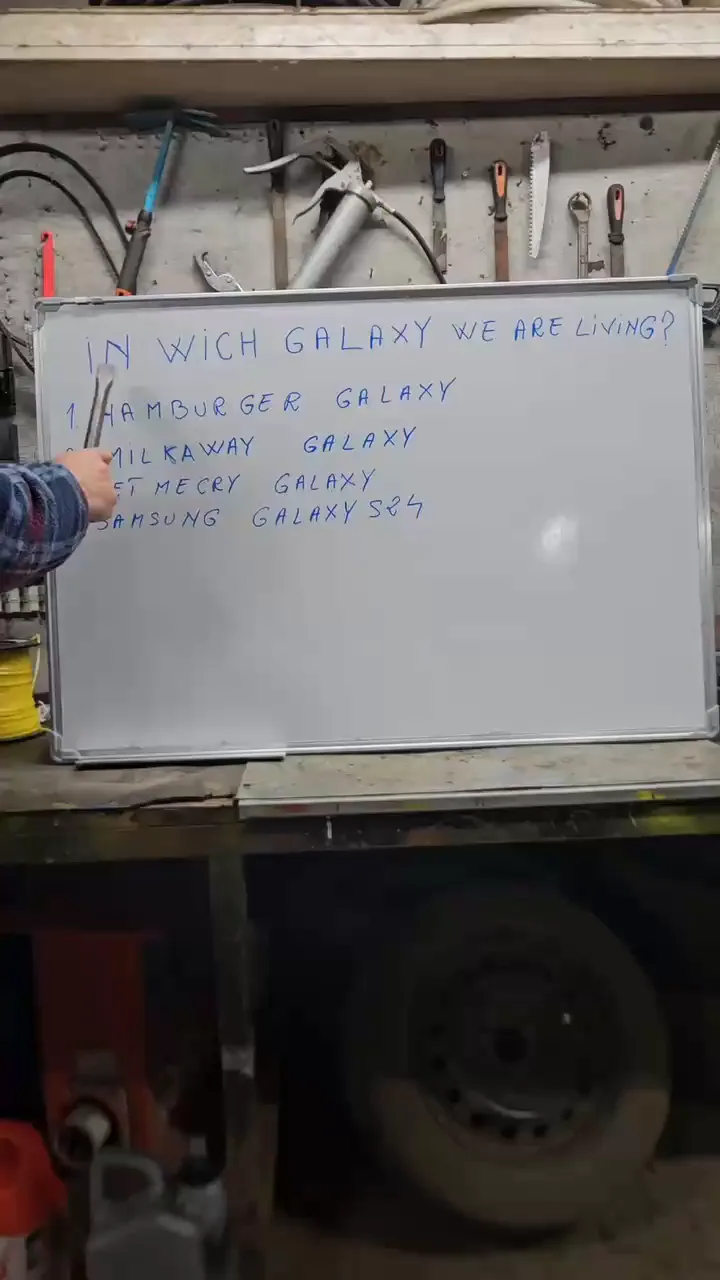 iN WiCH GALAXY WE ARE LiViNG?
1. HAMBURGER GALAXY
MiLKAWAY GALAXY
MECRY GALAXY
SAMSUNG GALAXY S24